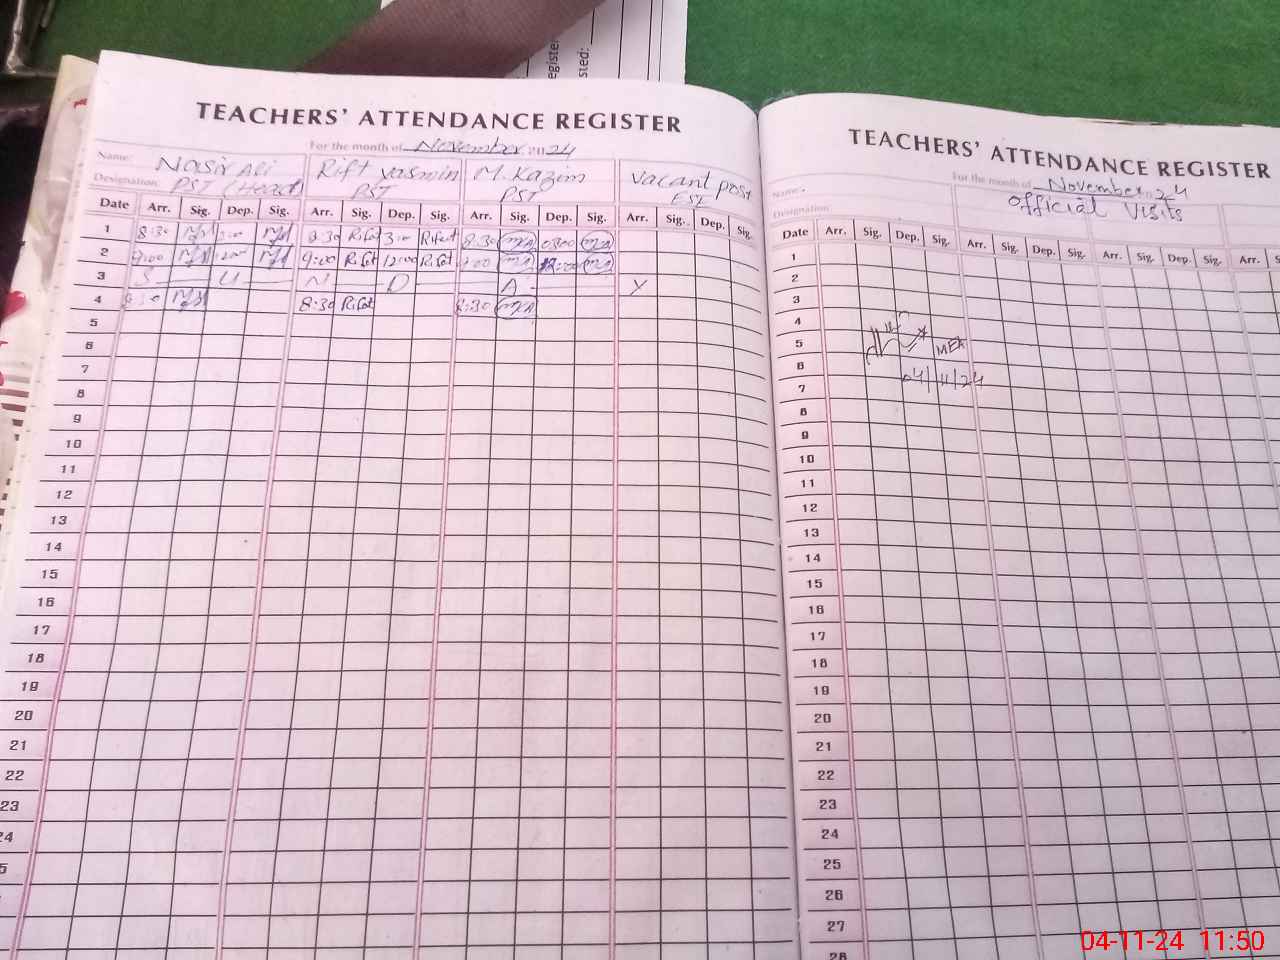 egister
sted:
TEACHERS' ATTENDANCE REGISTER
For the month of November 2024
Name: Nasir Ali Rift yasmin M. Kazim Vacant post
Designation: PST (Head) PST PST ESE
Date Arr. Sig. Dep. Sig. Arr. Sig. Dep. Sig. Arr. Sig. Dep. Sig. Arr. Sig. Dep. Sig.
1 8:30 8:30 Rifat Rifat 8:30 0300
2 9:00 9:00 Rifat 12:00 Rifat 9:00 12:00
3 S U N D A Y
4 8:30 8:30 Rifat 8:30
5
6
7
8
9
10
11
12
13
14
15
16
17
18
19
20
21
22
23
24
5
TEACHERS' ATTENDANCE REGISTER
For the month of November 24
Name:
Designation:
official Visits
Date Arr. Sig. Dep. Sig. Arr. Sig. Dep. Sig. Arr. Sig. Dep. Sig. Arr. S
1
2
3
4
5 MEA
6
7 04/11/24
8
9
10
11
12
13
14
15
16
17
18
19
20
21
22
23
24
25
26
27
28
04-11-24 11:50